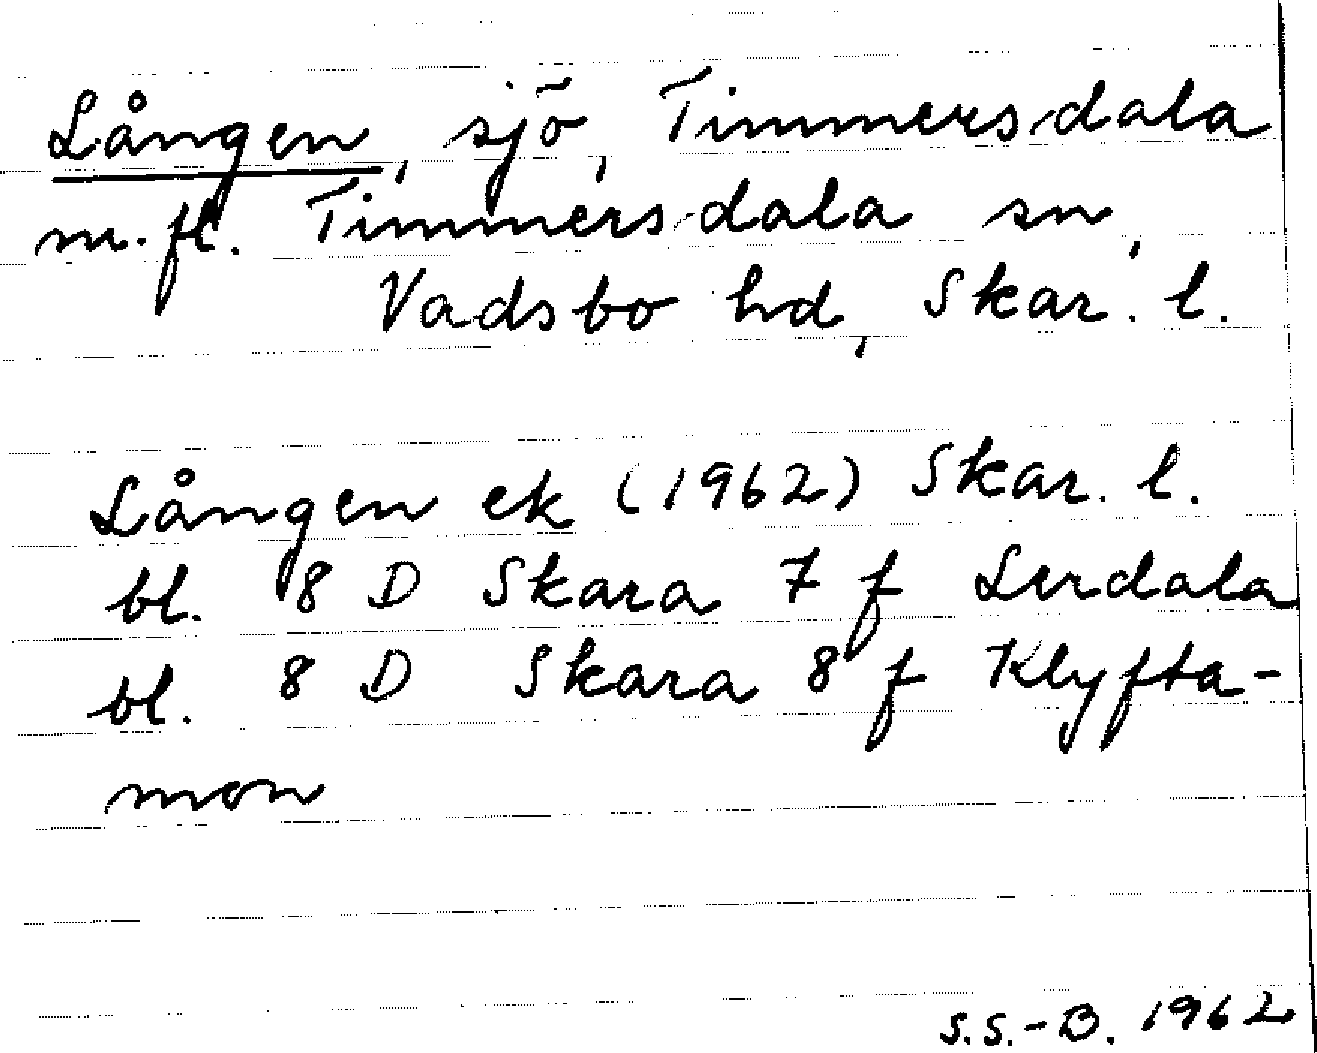 Lången, sjö, Timmersdala
m. fl. Timmersdala sn,
Vadsbo hd, Skar. l.
Lången ek (1962) Skar. l.
bl. 8 D Skara 7 f Lerdala
bl. 8 D Skara 8 f Klyfta-
mon
S.S.-B. 1962